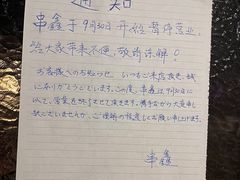 通知
串鑫于9月30日开始暂停营业,
给大家带来不便,敬请谅解!
お客様へのお知らせ。いつもご来店頂き、誠
にありがとうございます。この度、串鑫は9月30日に
以て、営業を終了させて頂きます。勝手ながら大変申し
訳ございませんが、ご理解の程宜しくお願い申し上げます。
串鑫